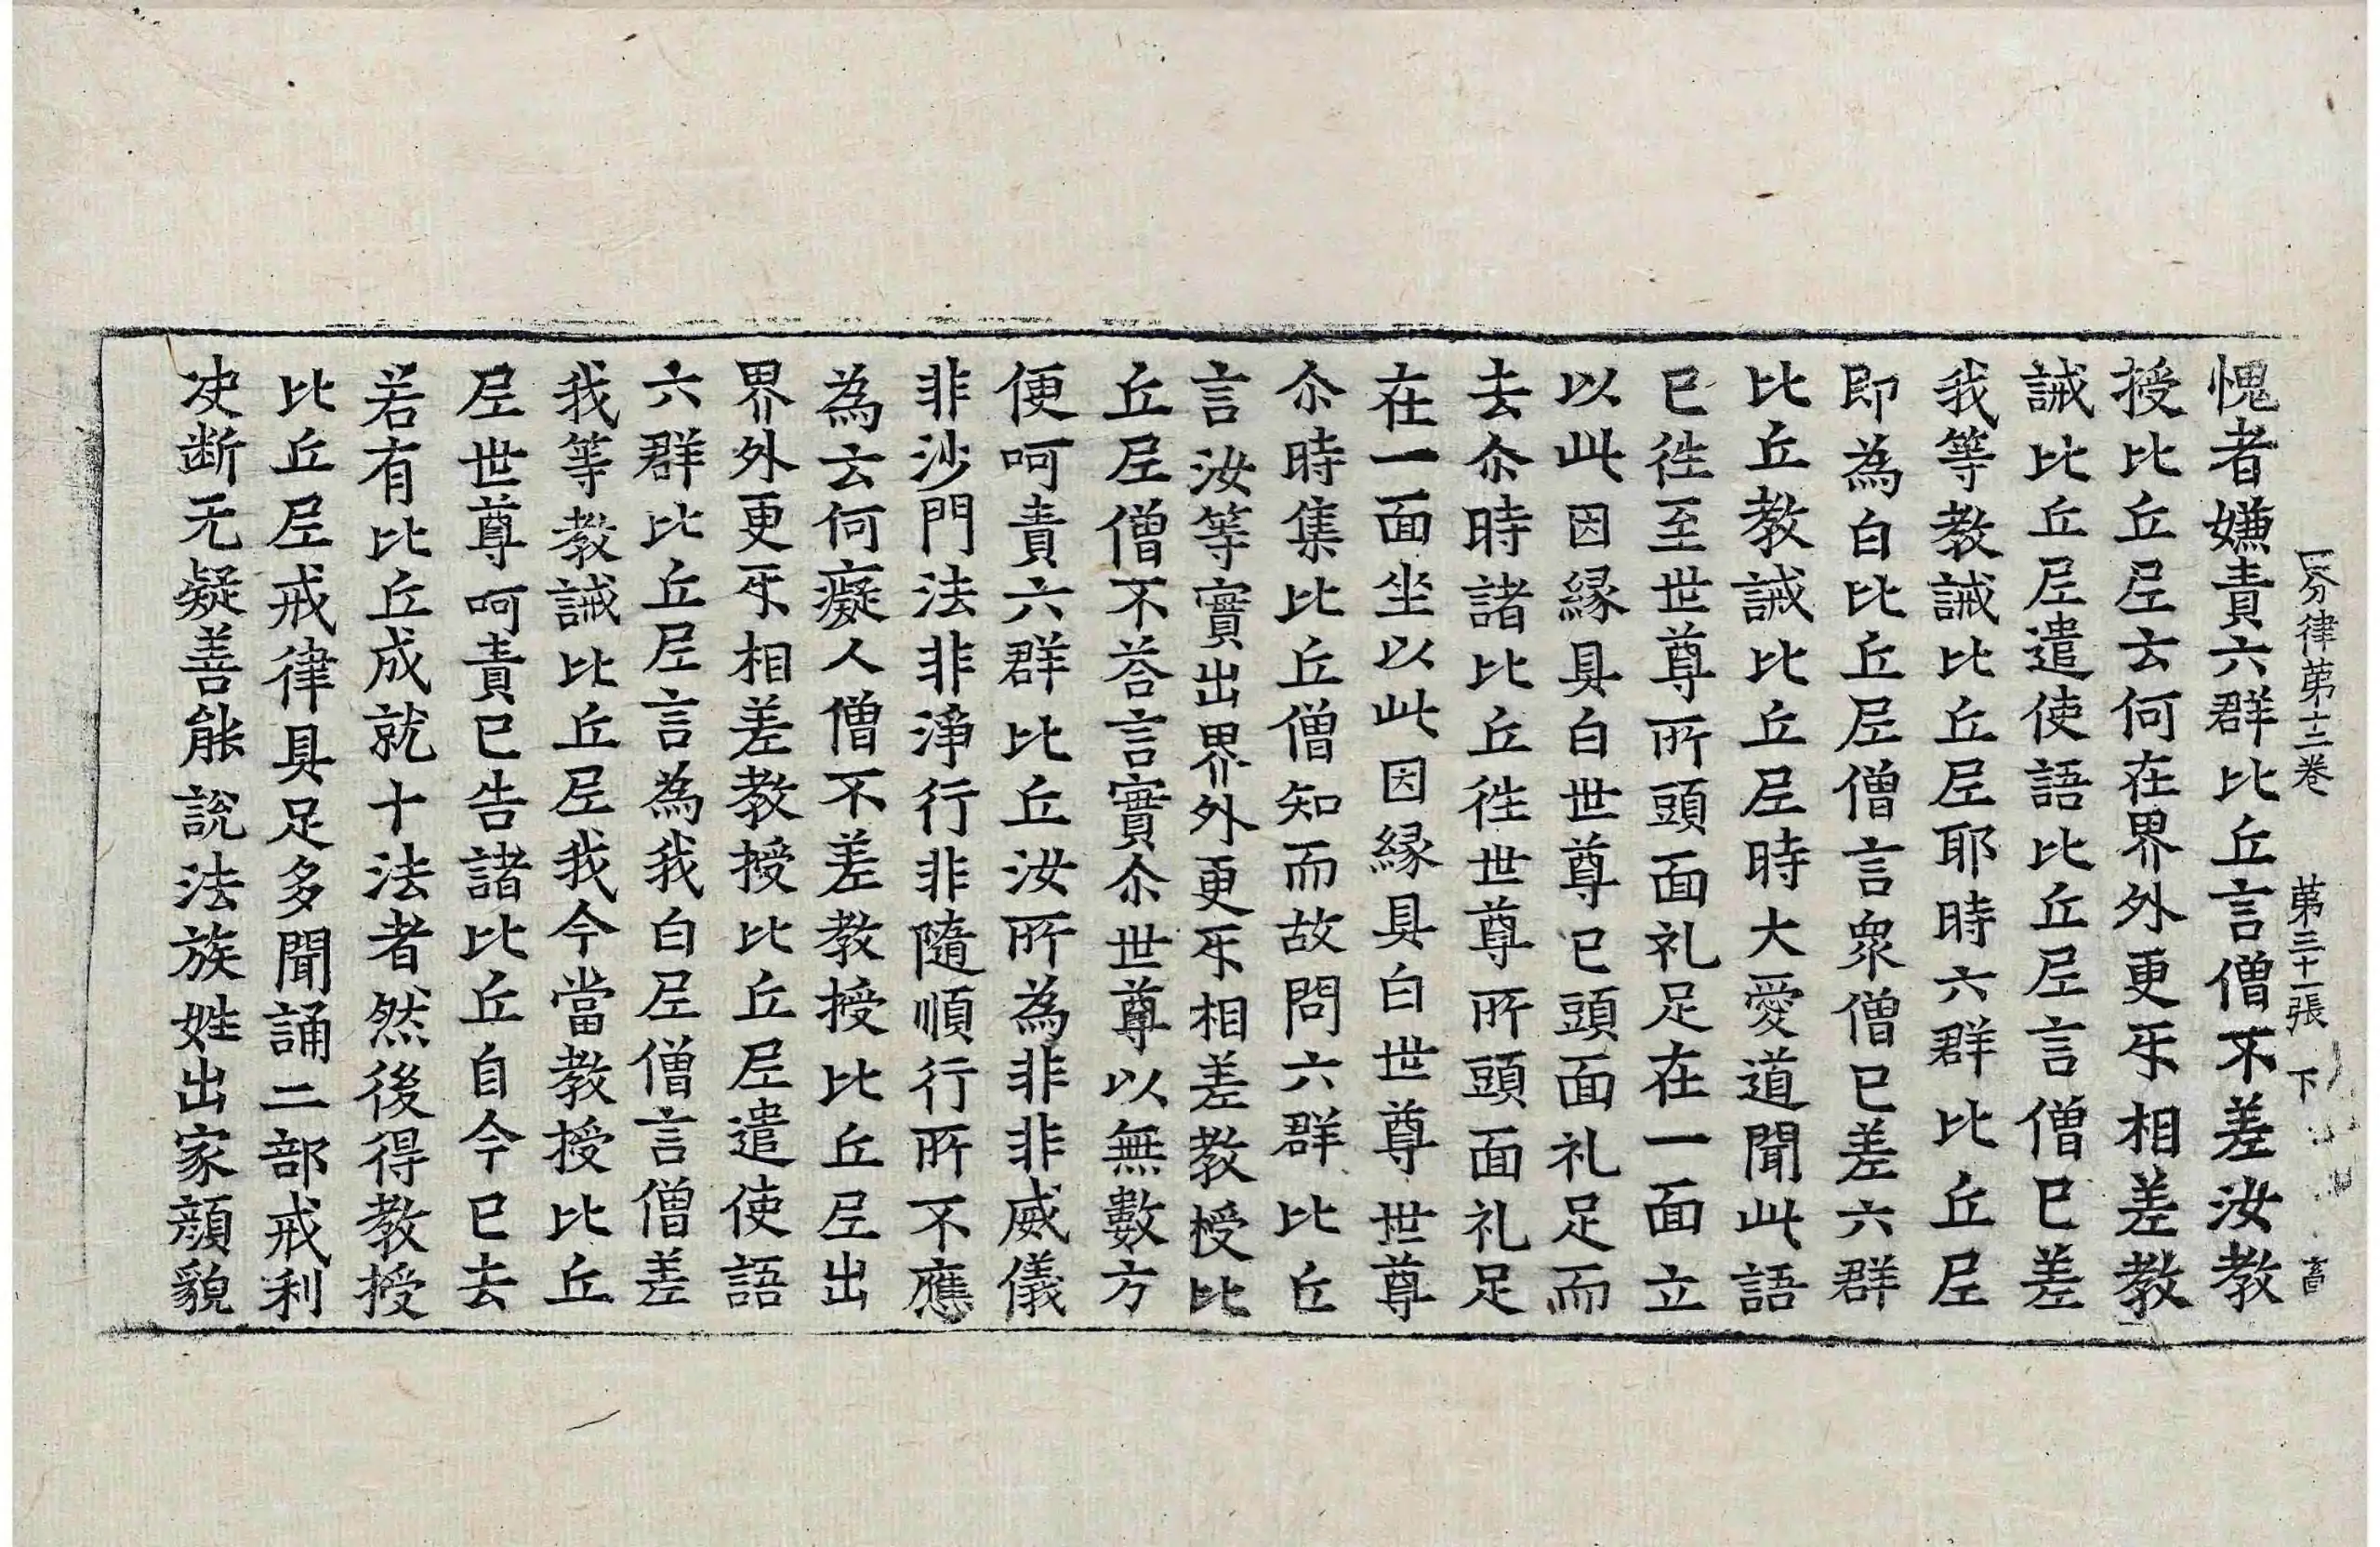 四分律苐十二卷 苐三十一張 下 畜
愧者嫌責六群比丘言僧不差汝教
授比丘𡰱云何在界外更𤓰相差教
誡比丘𡰱遣使語比丘𡰱言僧已差
我等教誡比丘𡰱耶時六群比丘𡰱
即為白比丘𡰱僧言衆僧已差六群
比丘教誡比丘𡰱時大愛道聞此語
已徃至世尊所頭面礼足在一面立
以此因縁具白世尊已頭面礼足而
去尒時諸比丘徃世尊所頭面礼足
在一面坐以此因縁具白世尊世尊
尒時集比丘僧知而故問六群比丘
言汝等實出界外更𤓰相差教授比
丘𡰱僧不荅言實尒世尊以無數方
便呵責六群比丘汝所為非非威儀
非沙門法非淨行非隨順行所不應
為云何癡人僧不差教授比丘𡰱出
界外更𤓰相差教授比丘𡰱遣使語
六群比丘𡰱言為我白𡰱僧言僧差
我等教誡比丘𡰱我今當教授比丘
𡰱世尊呵責已告諸比丘自今已去
若有比丘成就十法者然後得教授
比丘𡰱戒律具足多聞誦二部戒利
决断无疑善能說法族姓出家顔貌